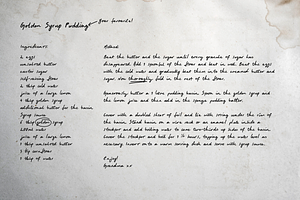 Golden Syrup Pudding
your favourite!
Ingredients
2 eggs
unsalted butter
caster sugar
self-raising flour
2 tbsp cold water
juice of a large lemon
4 tbsp golden syrup
additional butter for the basin
Syrup sauce
6 tbsp golden syrup
200ml water
juice of a large lemon
1 tbsp unsalted butter
2 tsp cornflour
1 tbsp of water
Method
Beat the butter and the sugar until every granule of sugar has
disappeared. Add 1 spoonful of the flour and beat in well. Beat the eggs
with the cold water and gradually beat them into the creamed butter and
sugar mix thoroughly. Fold in the rest of the flour.
Generously butter a 1 litre pudding basin. Spoon in the golden syrup and
the lemon juice and then add in the sponge pudding batter.
Cover with a double sheet of foil and tie with string under the rim of
the basin. Stand basin on a wire rack or an enamel plate inside a
stockpot and add boiling water to come two-thirds up sides of the basin.
Cover the stockpot and boil for 1 ½ hours, topping up the water level as
necessary. Invert onto a warm serving dish and serve with syrup sauce.
Enjoy!
Grandma xx